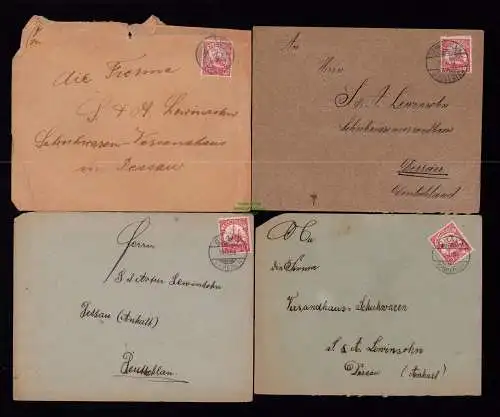 die Firma
S & A Lewinsohn
Schuhwaren Versandhaus
in Dessau
An
Herrn
S. A. Lewinsohn
Dessau
Deutschland
Herrn
S & Lewinsohn
Dessau (Anhalt)
Deutschlan.
An
die Firma
Versandhaus-Schuhwaren
S. & A. Lewinsohn
Dessau (Anhalt)